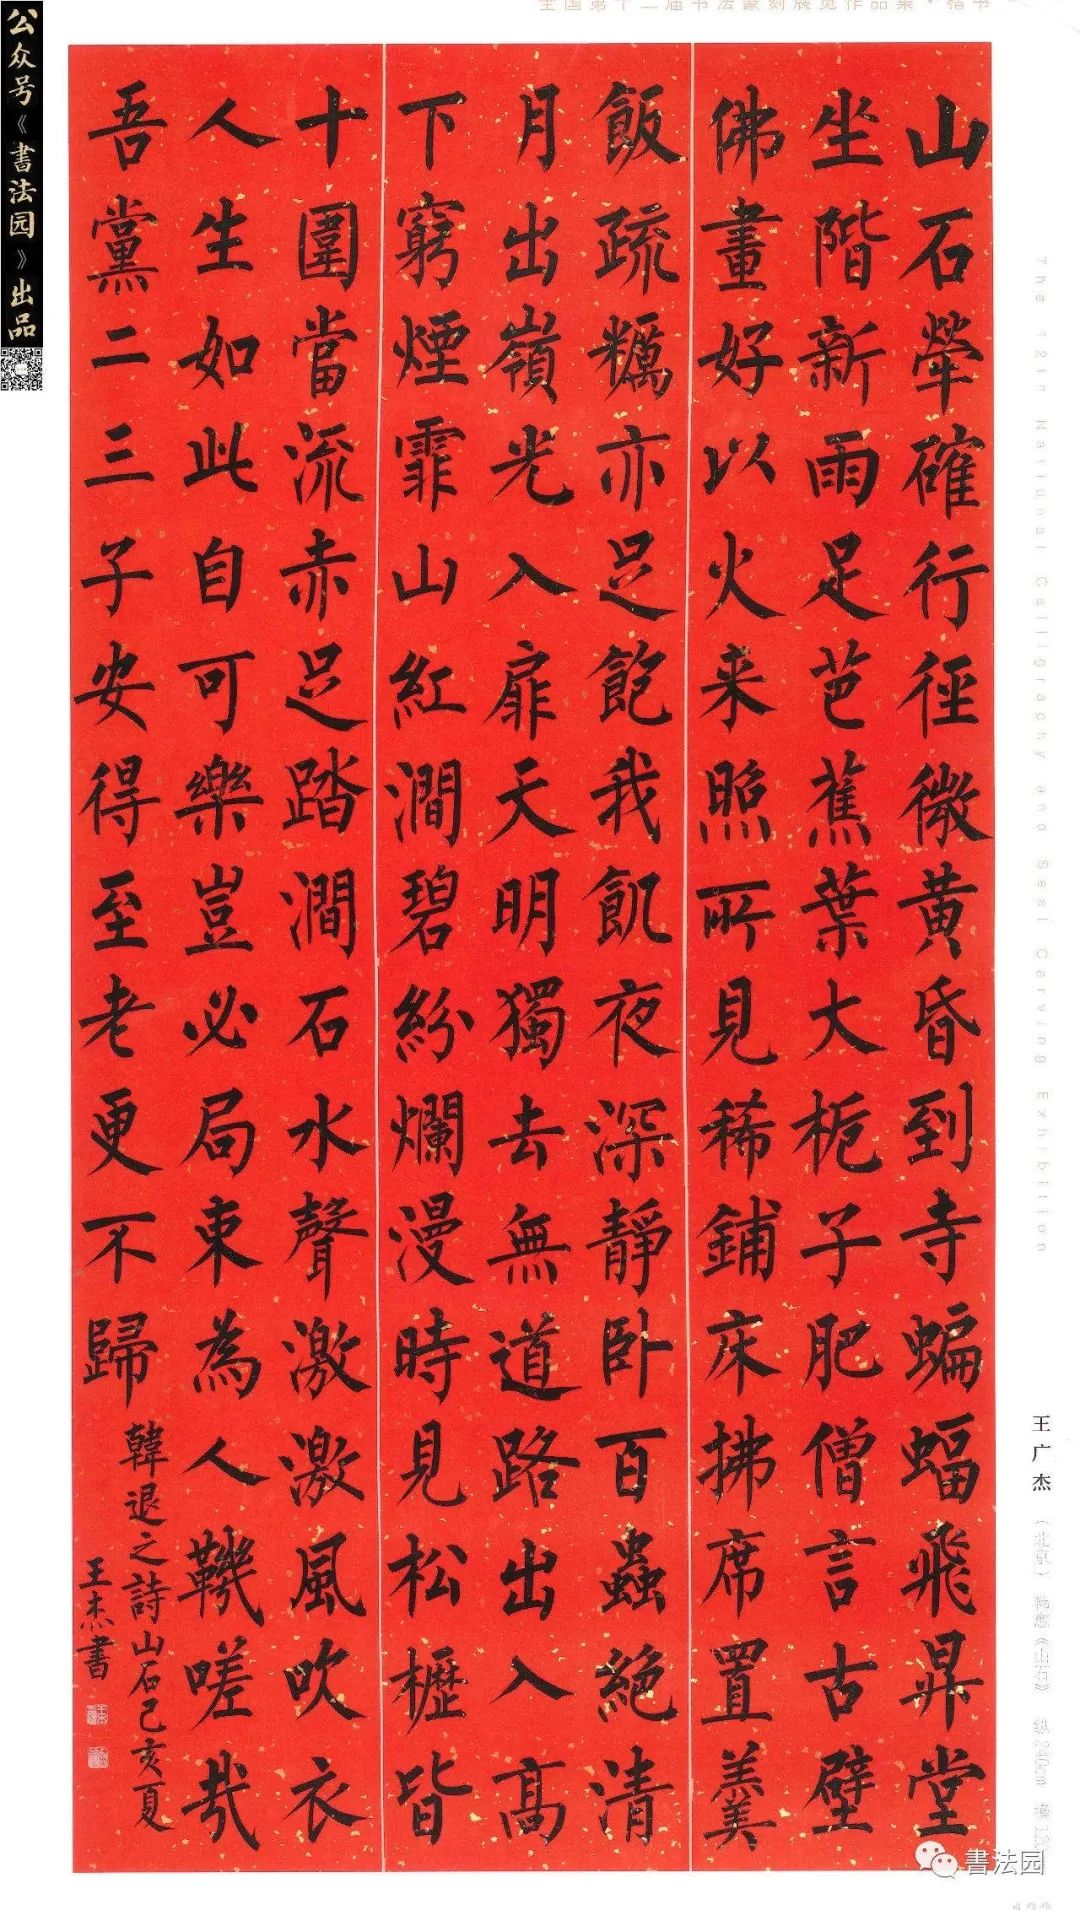 全国第十二届书法篆刻展览作品集·楷书
公众号《書法园》出品
山石犖確行徑微黄昏到寺蝙蝠飛昇堂
坐階新雨足芭蕉葉大梔子肥僧言古壁
佛畫好以火来照所見稀鋪床拂席置羹
飯疏糲亦足飽我飢夜深静卧百蟲絕清
月出嶺光入扉天明獨去無道路出入高
下窮煙霏山紅澗碧紛爛漫時見松櫪皆
十圍當流赤足踏澗石水聲激激風吹衣
人生如此自可樂豈必局束為人鞿嗟哉
吾黨二三子安得至老更不歸
韓退之詩山石己亥夏
王杰書
The 12th National Calligraphy and Seal Carving Exhibition
王广杰 （北京） 韩愈《山石》 纵240cm 横
書法园